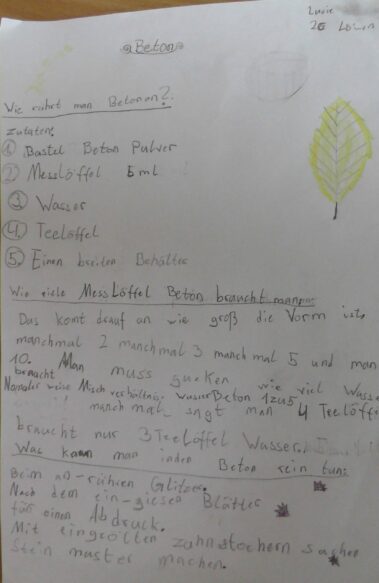 Lucie
2c Löwen
Beton
Wie rührt man Beton an?
Zutaten:
1. Bastel Beton Pulver
2. Messlöffel 5ml
3. Wasser
4. Teelöffel
5. Einen breiten Behälter
Wie viele Messlöffel Beton braucht man
Das komt drauf an wie groß die Vorm ist,
manchmal 2 manchmal 3 manchmal 5 und man
10. Man muss gucken wie viel Wasser
braucht
Normaler weise Misch verhältnis Wasser Beton 1 zu 5
manchmal sagt man 4 Teelöffel
braucht nur 3 Teelöffel Wasser.
Was kann man in den Beton rein tun:
Beim an-rühren Glitzer.
Nach dem ein-giesen Blätter
für einen Abdruck.
Mit zahnstochern
Stein muster machen.